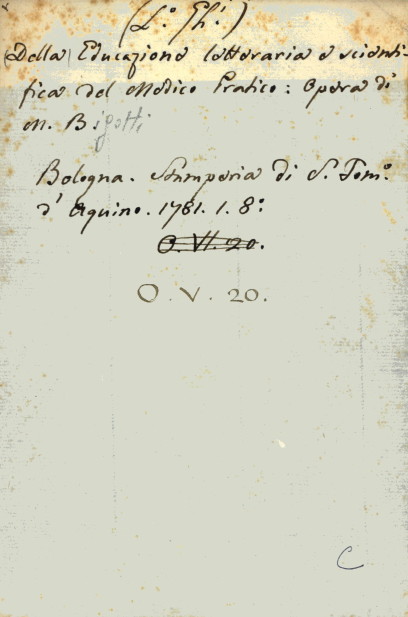 (L.º Gh.º)
(Della) Educazione letteraria e scienti-
fica del Medico Pratico: Opera di
M. Bigotti
Bologna. Stamperia di S. Tom.º
d'Aquino. 1781. 1. 8º
O. VI. 20.
O. V. 20.
C